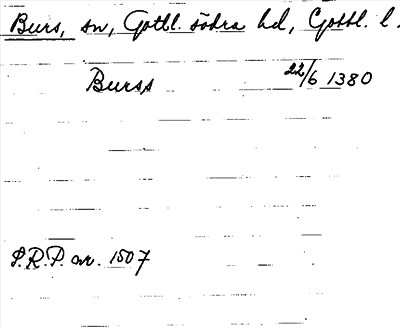 Burs, sn, Gotl. södra hd, Gotl. l.
Burss 22/6 1380
S.R.P. nr. 1507